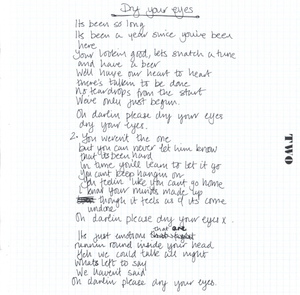 Dry your eyes
Its been so long
Its been a year since you've been
here
Your lookin good, lets snatch a tune
and have a beer
We'll have our heart to heart
there's talkin to be done
No teardrops from the start
Weve only just begun.
Oh darlin please dry your eyes
dry your eyes.
2- You werent the one
but you can never let him know
that its been hard
in time you'll learn to let it go
you cant keep hangin on
You feelin like you cant go home
and your minds made up
though it feels as if its come
undone
Oh darlin please dry your eyes x.
Its just emotions that are
runnin round inside your head
Yeh we could talk all night
whats left to say
We havent said
Oh darlin please dry your eyes.
TWO